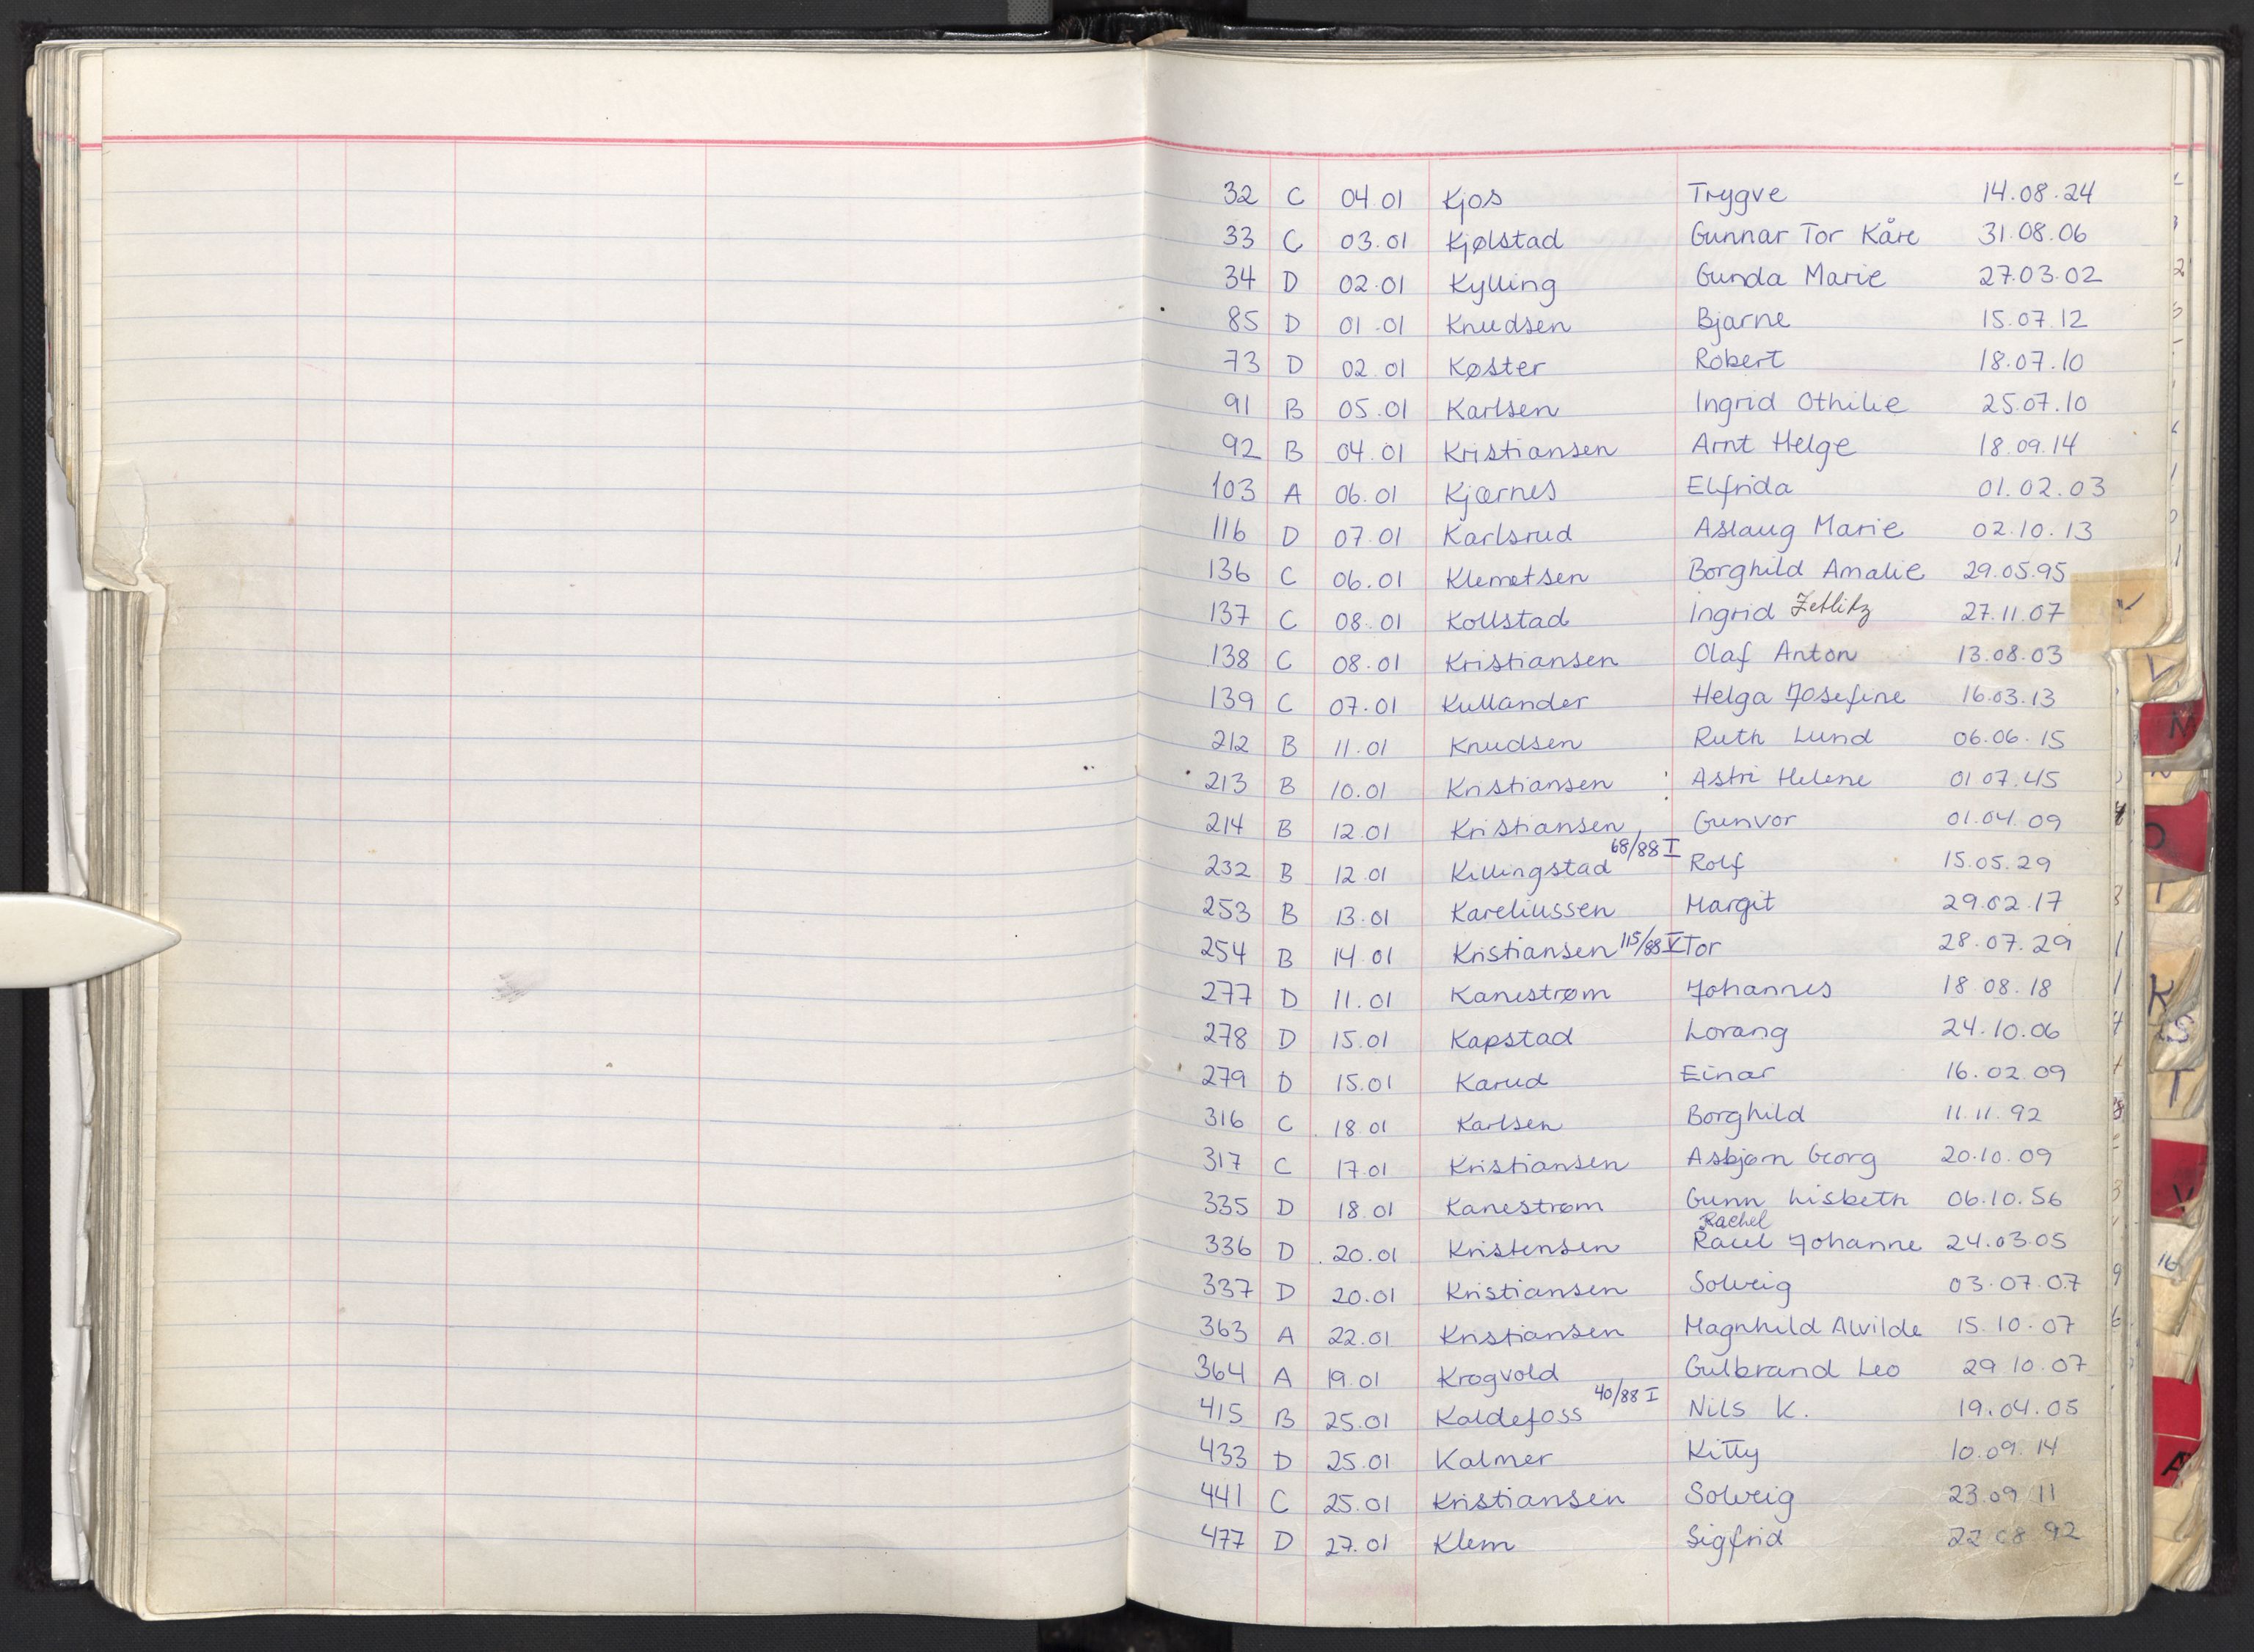 32 C 04.01 Kjos Trygve 14.08.24
33 C 03.01 Kjølstad Gunnar Tor Kåre 31.08.06
34 D 02.01 Kylling Gunda Marie 27.03.02
85 D 01.01 Knudsen Bjarne 15.07.12
73 D 02.01 Køster Robert 18.07.10
91 B 05.01 Karlsen Ingrid Othilie 25.07.10
92 B 04.01 Kristiansen Arnt Helge 18.09.14
103 A 06.01 Kjærnes Elfrida 01.02.03
116 D 07.01 Karlsrud Aslaug Marie 02.10.13
136 C 06.01 Klemetsen Borghild Amalie 29.05.95
137 C 08.01 Kollstad Ingrid Zetlitz 27.11.07
138 C 08.01 Kristiansen Olaf Anton 13.08.03
139 C 07.01 Kullander Helga Josefine 16.03.13
212 B 11.01 Knudsen Ruth Lund 06.06.15
213 B 10.01 Kristiansen Astri Helene 01.07.45
214 B 12.01 Kristiansen Gunvor 01.04.09
68/88 I
232 B 12.01 Killingstad Rolf 15.05.29
253 B 13.01 Kareliussen Margit 29.02.17
254 B 14.01 Kristiansen 115/88 V Tor 28.07.29
277 D 11.01 Kanestrøm Johannes 18.08.18
278 D 15.01 Kapstad Lorang 24.10.06
279 D 15.01 Karud Einar 16.02.09
316 C 18.01 Karlsen Borghild 11.11.92
317 C 17.01 Kristiansen Asbjørn Georg 20.10.09
335 D 18.01 Kanestrøm Gunn Lisbeth 06.10.56
Rachel
336 D 20.01 Kristensen Raell Johanne 24.03.05
337 D 20.01 Kristiansen Solveig 03.07.07
363 A 22.01 Kristiansen Magnhild Alvilde 15.10.07
364 A 19.01 Krogvold Gulbrand Leo 29.10.07
40/88 I
415 B 25.01 Kaldefoss Nils K. 19.04.05
433 D 25.01 Kalmer Kitty 10.09.14
441 C 25.01 Kristiansen Solveig 23.09.11
477 D 27.01 Klem Sigfrid 22.08.92